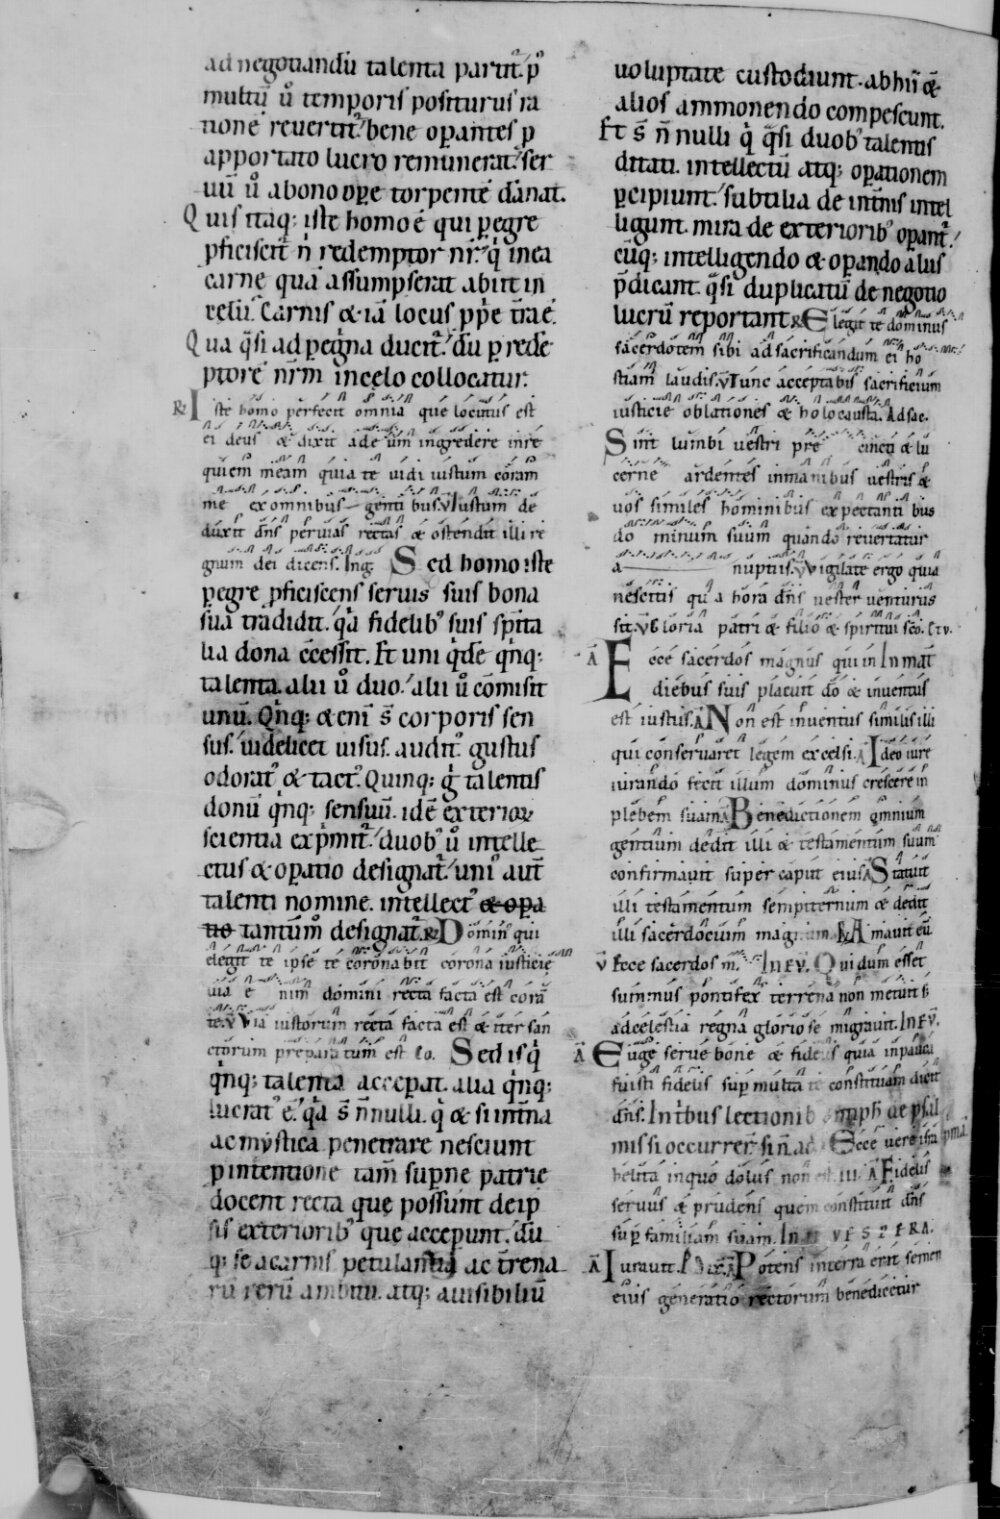 ad negotiandū talenta partit᷑. p᷒
multū ů temporis positurus ra
tione᷒ revertit᷑. bene oꝑantes ꝑ
apportato lucro remunerat᷑. ser
uū ů a bono oꝑe torpentē dānat.
Quis itaq; iste homo ē qui ꝑegre
ꝓficiscit᷑ n̄ redemptor nr̄. q̇ in ea
carne quā assumpserat abiit in
celū. Carnis & iā locus ꝓꝑe tr̄a ē.
Qua q̄si ad ꝑegrina ducit᷑. dū ꝑ redē
ptorē nr̄m in celo collocatur.
R Iste homo perfecit omnia que locutus est
ei deus & dixit ad eum ingredere in re
quiem meam quia te uidi iustum coram
me ex omnibus genti bus. V Iustum de
duxit dn̄s per uias rectas & ostendit illi re
gnum dei dicens. Ing. Sed homo iste
ꝑegre ꝓficiscens seruis suis bona
sua tradidit. q̇a fidelib᷒ suis sp̄ita
lia dona ccessit. Et uni q̇dē q̇nq;
talenta. alii ů duo. alii ů cōmisit
unū. Q̇nq; & eni s̄ corporis sen
sus. uidelicet uisus. audit᷒ gustus
odorat᷒ & tact᷒. Quinq; g̊ talentis
donū q̇nq; sensuū. id ē exterior
scientia exp̄mit᷑. duob᷒ ů intelle
ctus & oꝑatio designat᷑. uni᷒ aut̄
talenti nomine. intellect᷒ & opa
tio tantum designat᷑. R Domin᷒ qui
elegit te ipse te coronabit corona iusticie
uia e nim domini recta facta est corā
te. V Via iustorum recta facta est & iter san
ctorum preparatum est Co. Sed is q̇
q̇nq; talenta acceperat. alia q̇nq;
lucrat᷒ ē. q̇a s̄ n̄nulli. q̇ & si int̄na
ac mystica penetrare nesciunt
ꝑ intentione tam̄ suꝑne patrie
docent recta que possunt de ip
sis exteriorib᷒ que accepunt. dū
q; se a carnis petulantia ac t̄rena
rū rerū ambitu. atq; a uisibiliū
uoluptate custodiunt. ab hii &
alios ammonendo compescunt.
Et s̄ n̄ nulli q̇ q̄si duob᷒ talentis
ditati. intellectū atq; oꝑationem
ꝑcipiunt. subtilia de int̄nis intel
ligunt. mira de exteriorib᷒ oꝑant᷑.
cūq; intelligendo & oꝑando aliis
p̄dicant. q̄si duplicatū de negotio
lucrū reportant. R Elegit te dominus
sacerdotem sibi ad sacrificandum ei ho
stiam laudis. V Tunc acceptabis sacrificium
iusticie oblationes & holocausta. Ad sac.
Sint lumbi uestri pre cincti & lu
cerne ardentes in manibus uestris &
uos similes hominibus expectanti bus
do minum suum quando reuertatur
a nuptiis. V Vigilate ergo quia
nescitis qu a hora dn̄s uester uenturus
sit. V Gloria patri & filio & spiritui sc̄o.
A Ecce sacerdos magnus qui in In mat̄
diebus suis placuit dō & inuentus
est iustus. A Non est inuentus similis illi
qui conseruaret legem excelsi. A Ideo iure
iurando fecit illum dominus crescere in
plebem suam. A Benedictionem omnium
gentium dedit illi & testamentum suum
confirmauit super caput eius. A Statuit
illi testamentum sempiternum & dedit
illi sacerdocium magnum. R Amauit eū
V Ecce sacerdos m. In EV. Qui dum esset
summus pontifex terrena non metuit s;
ad celestia regna gloriose migrauit. In EV.
A Euge serue bone & fidelis quia in pauca
fuisti fidelis supr̄ multa te constituam dicit
dn̄s. In t̄bus lectionib
mis si occurrer᷑. si n̄ ad Ecce uere
helita in quo dolus non est. A Fidelis
seruus & prudens quem constituit dn̄s
sup̄ familiam suam. In VESPERA.
A Iurauit. A Potens in terra erit semen
eius generatio rectorum benedicetur